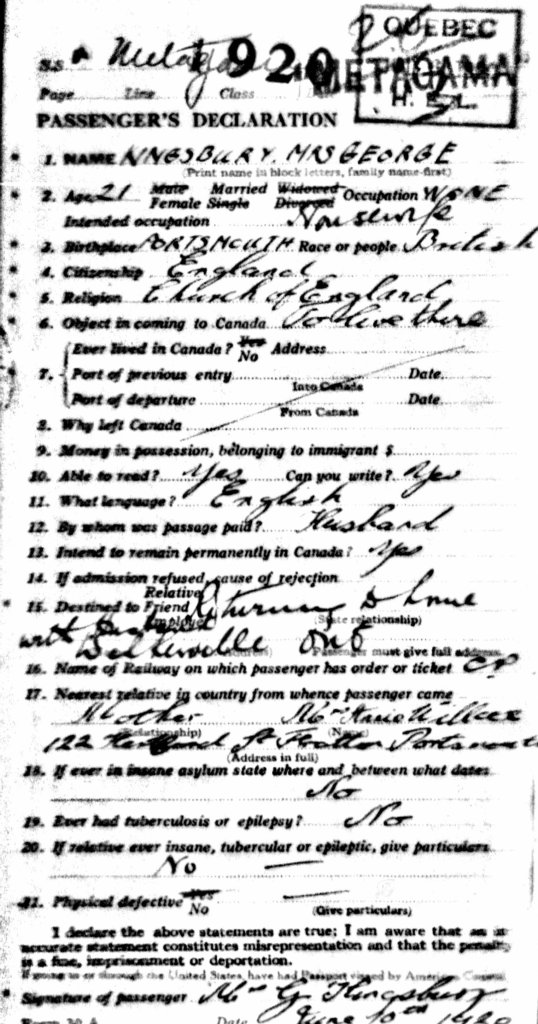 QUEBEC
S.S. Metagama 1920 "METAGAMA"
Page Line Class H. & L.
PASSENGER'S DECLARATION
1. NAME KINGSBURY. MRS GEORGE
(Print name in block letters, family name first)
2. Age 21 Male Married Widowed Occupation NONE
Female Single Divorced
Intended occupation Housewife
3. Birthplace PORTSMOUTH Race or people British
4. Citizenship England
5. Religion Church of England
6. Object in coming to Canada To live there
Ever lived in Canada? Yes No Address
7. Port of previous entry Date
Into Canada
Port of departure Date
From Canada
8. Why left Canada
9. Money in possession, belonging to immigrant $
10. Able to read? Yes Can you write? Yes
11. What language? English
12. By whom was passage paid? Husband
13. Intend to remain permanently in Canada? Yes
14. If admission refused, cause of rejection
Relative
15. Destined to Friend Returning to home
Employer (State relationship)
with husband
Ont
(Address) Passenger must give full address
16. Name of Railway on which passenger has order or ticket CP
17. Nearest relative in country from whence passenger came
Mother Mrs
(Relationship) (Name)
122 St Portsmouth
(Address in full)
18. If ever in insane asylum state where and between what dates
No
19. Ever had tuberculosis or epilepsy? No
20. If relative ever insane, tubercular or epileptic, give particulars
No —
21. Physical defective Yes No —
(Give particulars)
I declare the above statements are true; I am aware that an in
accurate statement constitutes misrepresentation and that the penalty
is a fine, imprisonment or deportation.
If going to or through the United States, have had Passport vised by American Consul
Signature of passenger Mrs G Kingsbury
Form 30 A Date June 10th 1920